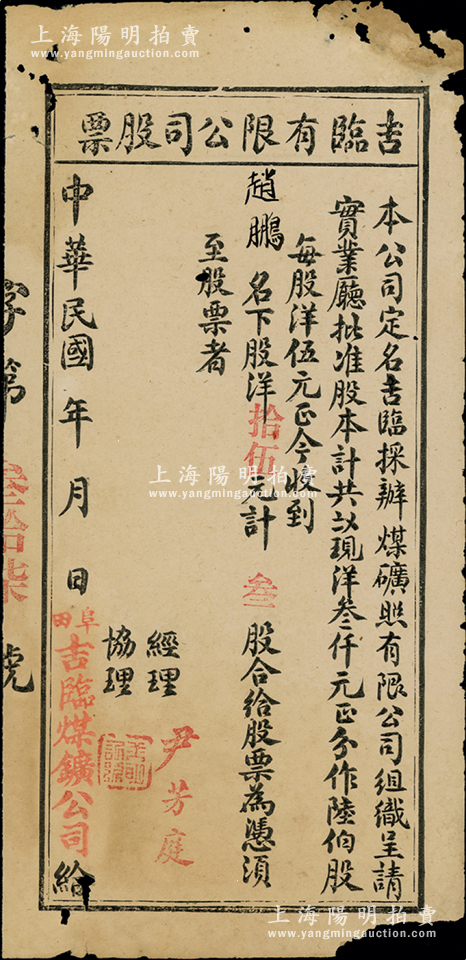 上海陽明拍賣
www.yangmingauction.com
吉臨有限公司股票
本公司定名吉臨採辦煤礦照有限公司組織呈請
實業廳批准股本計共以現洋叁仟元正分作陸伯股
每股洋伍元正今收到
趙鵬 名下股洋拾伍元計 叁 股合給股票為憑須
至股票者
經理
協理
尹芳庭
中華民國 年 月 日
阜田吉臨煤鑛公司給
字第 叁拾柒 號
上海陽明拍賣
www.yangmingauction.com
上海陽明拍賣
www.yangmingauction.com